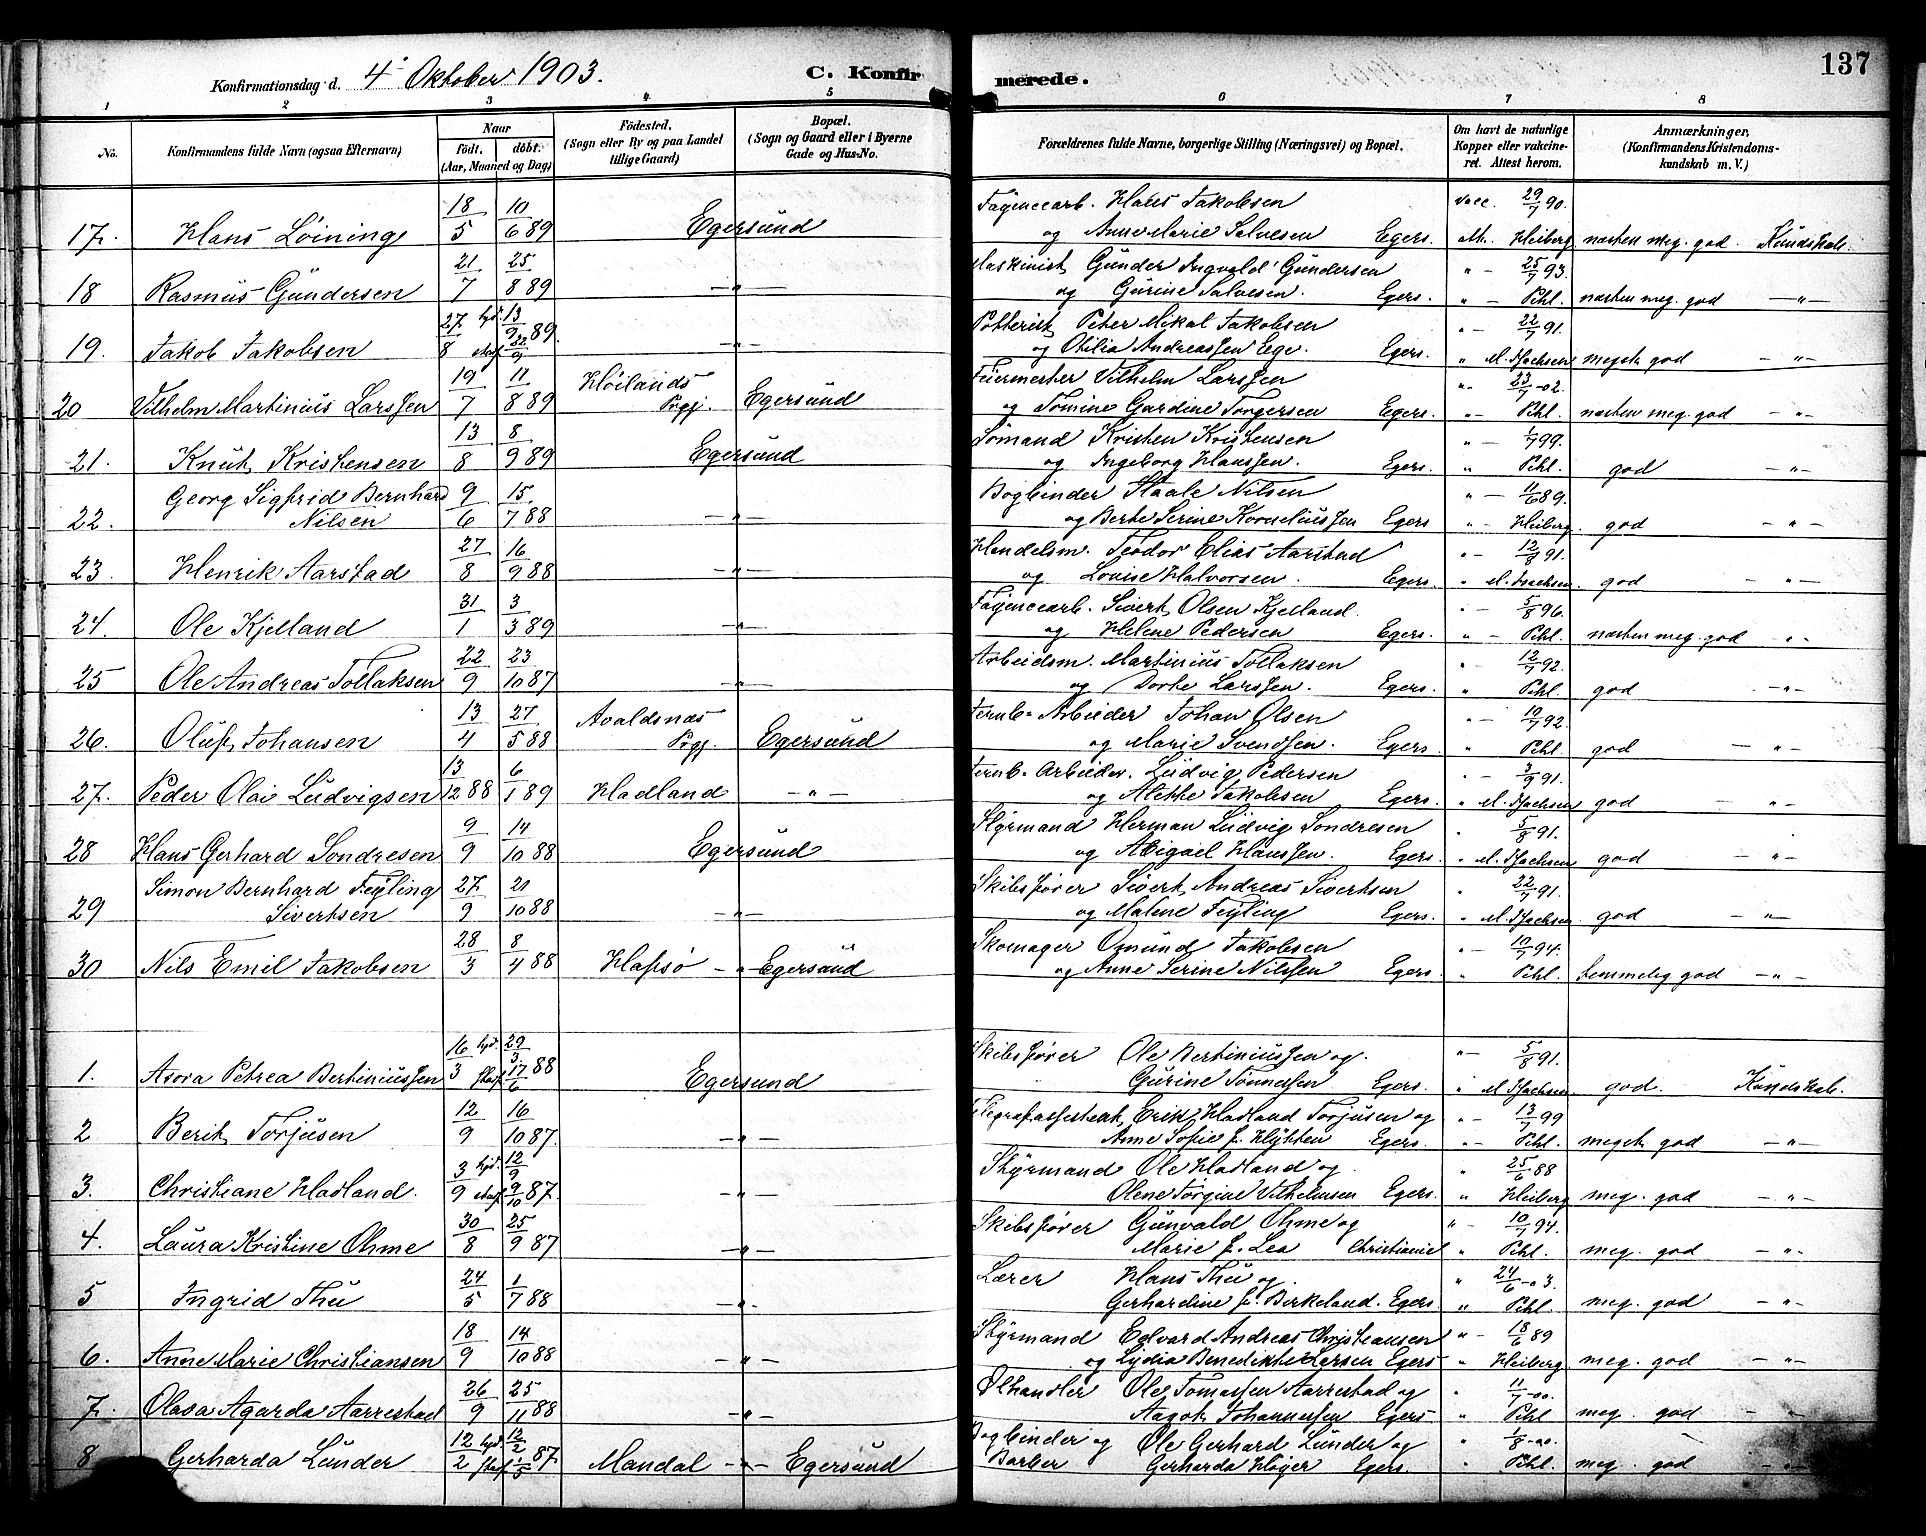 137
Konfirmationsdag d. 4' Oktober 1903.
C. Konfirmerede.
1 2 3 4 5 6 7 8
No.
Konfirmandens fulde Navn (ogsaa Efternavn)
Naar
født. døbt.
(Aar, Maaned og Dag)
Fødested.
(Sogn eller By og paa Landet
tillige Gaard)
Bopæl.
(Sogn og Gaard eller i Byerne
Gade og Hus-No.
Forældrenes fulde Navne, borgerlige Stilling (Næringsvei) og Bopæl.
Om havt de naturlige
Kopper eller vakcine-
ret. Attest herom.
Anmærkninger.
(Konfirmandens Kristendoms-
kundskab m. V.)
18 10 Fayencearb. Hans Jakobsen vacc. 29/7 90.
17. Hans Løining 5 6 89 Egersund og Anne Marie Salvesen Egers. Heiberg næsten meg. god Kundskab.
21 25 Maskinist Gunder Ingvald Gundersen " - 25/7 93.
18 Rasmus Gundersen 7 8 89 - " - og Gurine Salvesen. Egers. " - Pihl. næsten meg. god - " -
27 hjd. 13/9 Potterist Peter Mikal Jakobsen " - 22/7 91.
19. Jakob Jakobsen 8 22/9 89 - " - og Otilia Andreassen Ege. Egers. " M. Isachsen meget god - " -
19 11 Høilands Fuermester Vilhelm Larssen " - 23/7 -02.
20 Vilhelm Martinius Larssen 7 8 89 Prgj. Egersund og Tomine Gardine Torgersen Egers. " - Pihl. næsten meg. god - " -
13 8 Sømand Kristen Kristensen " - 1/7 99.
21. Knut Kristensen 8 9 89 Egersund og Ingeborg Hanssen. Egers. " Pihl. god - " -
Georg Sigfrid Bernhard 9 15 Bogbinder Staale Nilsen " - 11/6 89.
22. Nilsen 6 7 88 - " - og Berte Serine Korneliussen Egers " - Heiberg. god - " -
27 16 Handelsm. Teodor Elias Aarstad " - 12/8 91.
23. Henrik Aarstad 8 9 88 - " - og Louise Halvorsen. Egers. " M. Isachsen. god - " -
31 3 Fayencearb. Sivert Olsen Kjelland. " - 5/8 96.
24. Ole Kjelland 1 3 89 - " - og Helene Pedersen Egers. " - Pihl. næsten meg. god " -
22 23 Arbeidsm. Martinius Tollaksen " - 12/7 92.
25 Ole Andreas Tollaksen 9 10 87 - " - og Dorte Larssen. Egers. " Pihl. god - " -
13 27 Avaldsnæs Jernb- Arbeider Johan Olsen " - 10/7 92.
26. Oluf Johansen 4 5 88 Prgj. Egersund og Marie Svendsen. Egers. " Pihl. god - " -
13 6 Jernb- Arbeider. Ludvig Pedersen " - 3/9 91.
27. Peder Olai Ludvigsen 12 88 1 89 Hadland - " - og Alette Jakobsen Egers. " M. Isachsen god - " -
9 14 Styrmand Herman Ludvig Sondresen " 5/8 91.
28 Hans Gerhard Sondresen 9 10 88 Egersund og Abigael Hanssen. Egers. " M. Isachsen god - " -
Simon Bernhard Feyling 27 21 Skibsfører Sivert Andreas Sivertsen " 22/7 91.
29 Sivertsen 9 10 88 - " - og Malene Feyling Egers. " M. Isachsen. god - " -
28 8 Skomager Omund Jakobsen " - 10/7 94.
30 Nils Emil Jakobsen 3 4 88 Hafsø - " - Egersund og Anne Serine Nilssen Egers. " Pihl. temmelig god - " -
16 hjd. 29/3 Skibsfører Ole Bertiniussen og " - 5/8 91.
1. Asora Petrea Bertiniussen 3 17/6 88 Egersund Gurine Tønnessen Egers. " M. Isachsen. god. Kundskab.
12 16 Telegrafassistent Erik Hadland Torjusen og " - 13/7 99
2 Berit Torjusen 9 10 87. - " - Anne Sofie f. Hytten Egers. " - Pihl. meget god - " -
3 hjd. 12/9 Styrmand Ole Hadland og " 25/6 88
3. Christiane Hadland. 9 9/10 87. - " - Olene Torgine Vilhelmsen Egers. " Heiberg meg. god - " -
30 25 Skibsfører Gunvald Ohme og " - 10/7 94.
4. Laura Kristine Ohme 8 9 87 - " - Marie f. Lea Christiania " Pihl. meg. god - " -
24 1 Lærer Hans Thu og " 24/6 -03.
5 Ingrid Thu 5 7 88 - " - Gerhardine f. Birkeland. Egers " Pihl. meg. god - " -
18 14 Styrmand Edvard Andreas Christiansen " - 18/6 89
6. Anne Marie Christiansen 9 10 88 - " - og Lydia Benedikte Larsen Egers " Heiberg meg. god - " -
26 25 Ølhandler Ole Tomassen Aarrestad og " 11/7 -00.
7. Olava Agarda Aarrestad 9 11 88 - " - Aagot Johannessen Egers " Pihl meg. god - " -
12 hjd. 12/2 Bogbinder og Ole Gerhard Lunder og " 1/8 -00.
8 Gerharda Lunder 2 87. Mandal - " - Egersund Barber Gerharda Høyer Egers. " Pihl. meg. god - " -